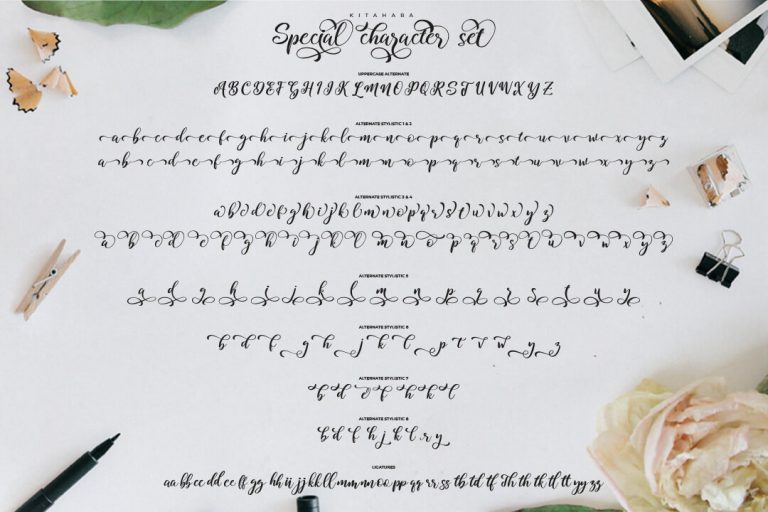 KITAHARA
Special character set
UPPERCASE ALTERNATE
A B C D E F G H I J K L M N O P Q R S T U V W X Y Z
ALTERNATE STYLISTIC 1 & 2
a b c d e f g h i j k l m n o p q r s t u v w x y z
a b c d e f g h i j k l m n o p q r s t u v w x y z
ALTERNATE STYLISTIC 3 & 4
a b c d e f g h i j k l m n o p q r s t u v w x y z
a b c d e f g h i j k l m n o p q r s t u v w x y z
ALTERNATE STYLISTIC 5
a d g h i j k l m n p q r s t u y
ALTERNATE STYLISTIC 6
b d f g h j k l p t v w y z
ALTERNATE STYLISTIC 7
b d f h k l
ALTERNATE STYLISTIC 8
b d f h j k l r y
LIGATURES
aa bb cc dd ee ff gg hh ii jj kk ll mm nn oo pp qq rr ss tb td tf Th th tk tl tt yy zz